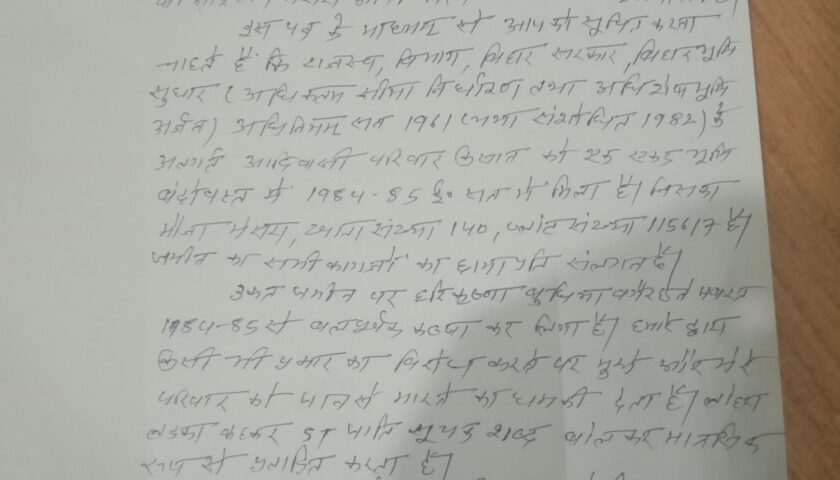 इस पत्र के माध्यम से आपको सूचित करना
चाहते हैं कि राजस्व, विभाग, बिहार सरकार, बिहार भूमि
सुधार (अधिकतम सीमा निर्धारण तथा अधिशेष भूमि
अर्जन) अधिनियम सन 1961 (यथा संशोधित 1982) के
अन्तर्गत आदिवासी परिवार किसान को एक एकड़ भूमि
बंदोवस्त में 1984-85 ई० सन में मिला है। जिसका
मौजा मेसरा, थाना संख्या 140, प्लांट संख्या 115617 है।
जमीन का सभी कागजों का छायाप्रति संलग्न है।
उक्त जमीन पर हरि कृष्णा बुधिया
1984-85 से बलपूर्वक कब्जा कर लिया है। हमारे द्वारा
किसी भी प्रकार का विरोध करने पर मुझे और मेरे
परिवार को जान से मारने का धमकी देता है।
कहकर ST जाति सूचक शब्द बोलकर मानसिक
रूप से प्रताड़ित करता है।